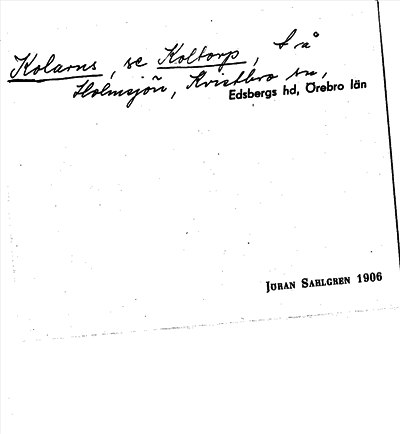 Kolarns, se Koltorp, t å
Holmsjön, Kvistbro sn,
Edsbergs hd, Örebro län
JÖRAN SAHLGREN 1906